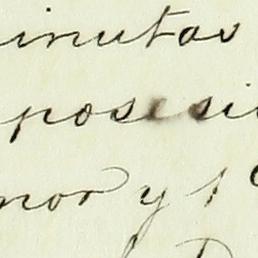 inutas
posesi
mor y 1º